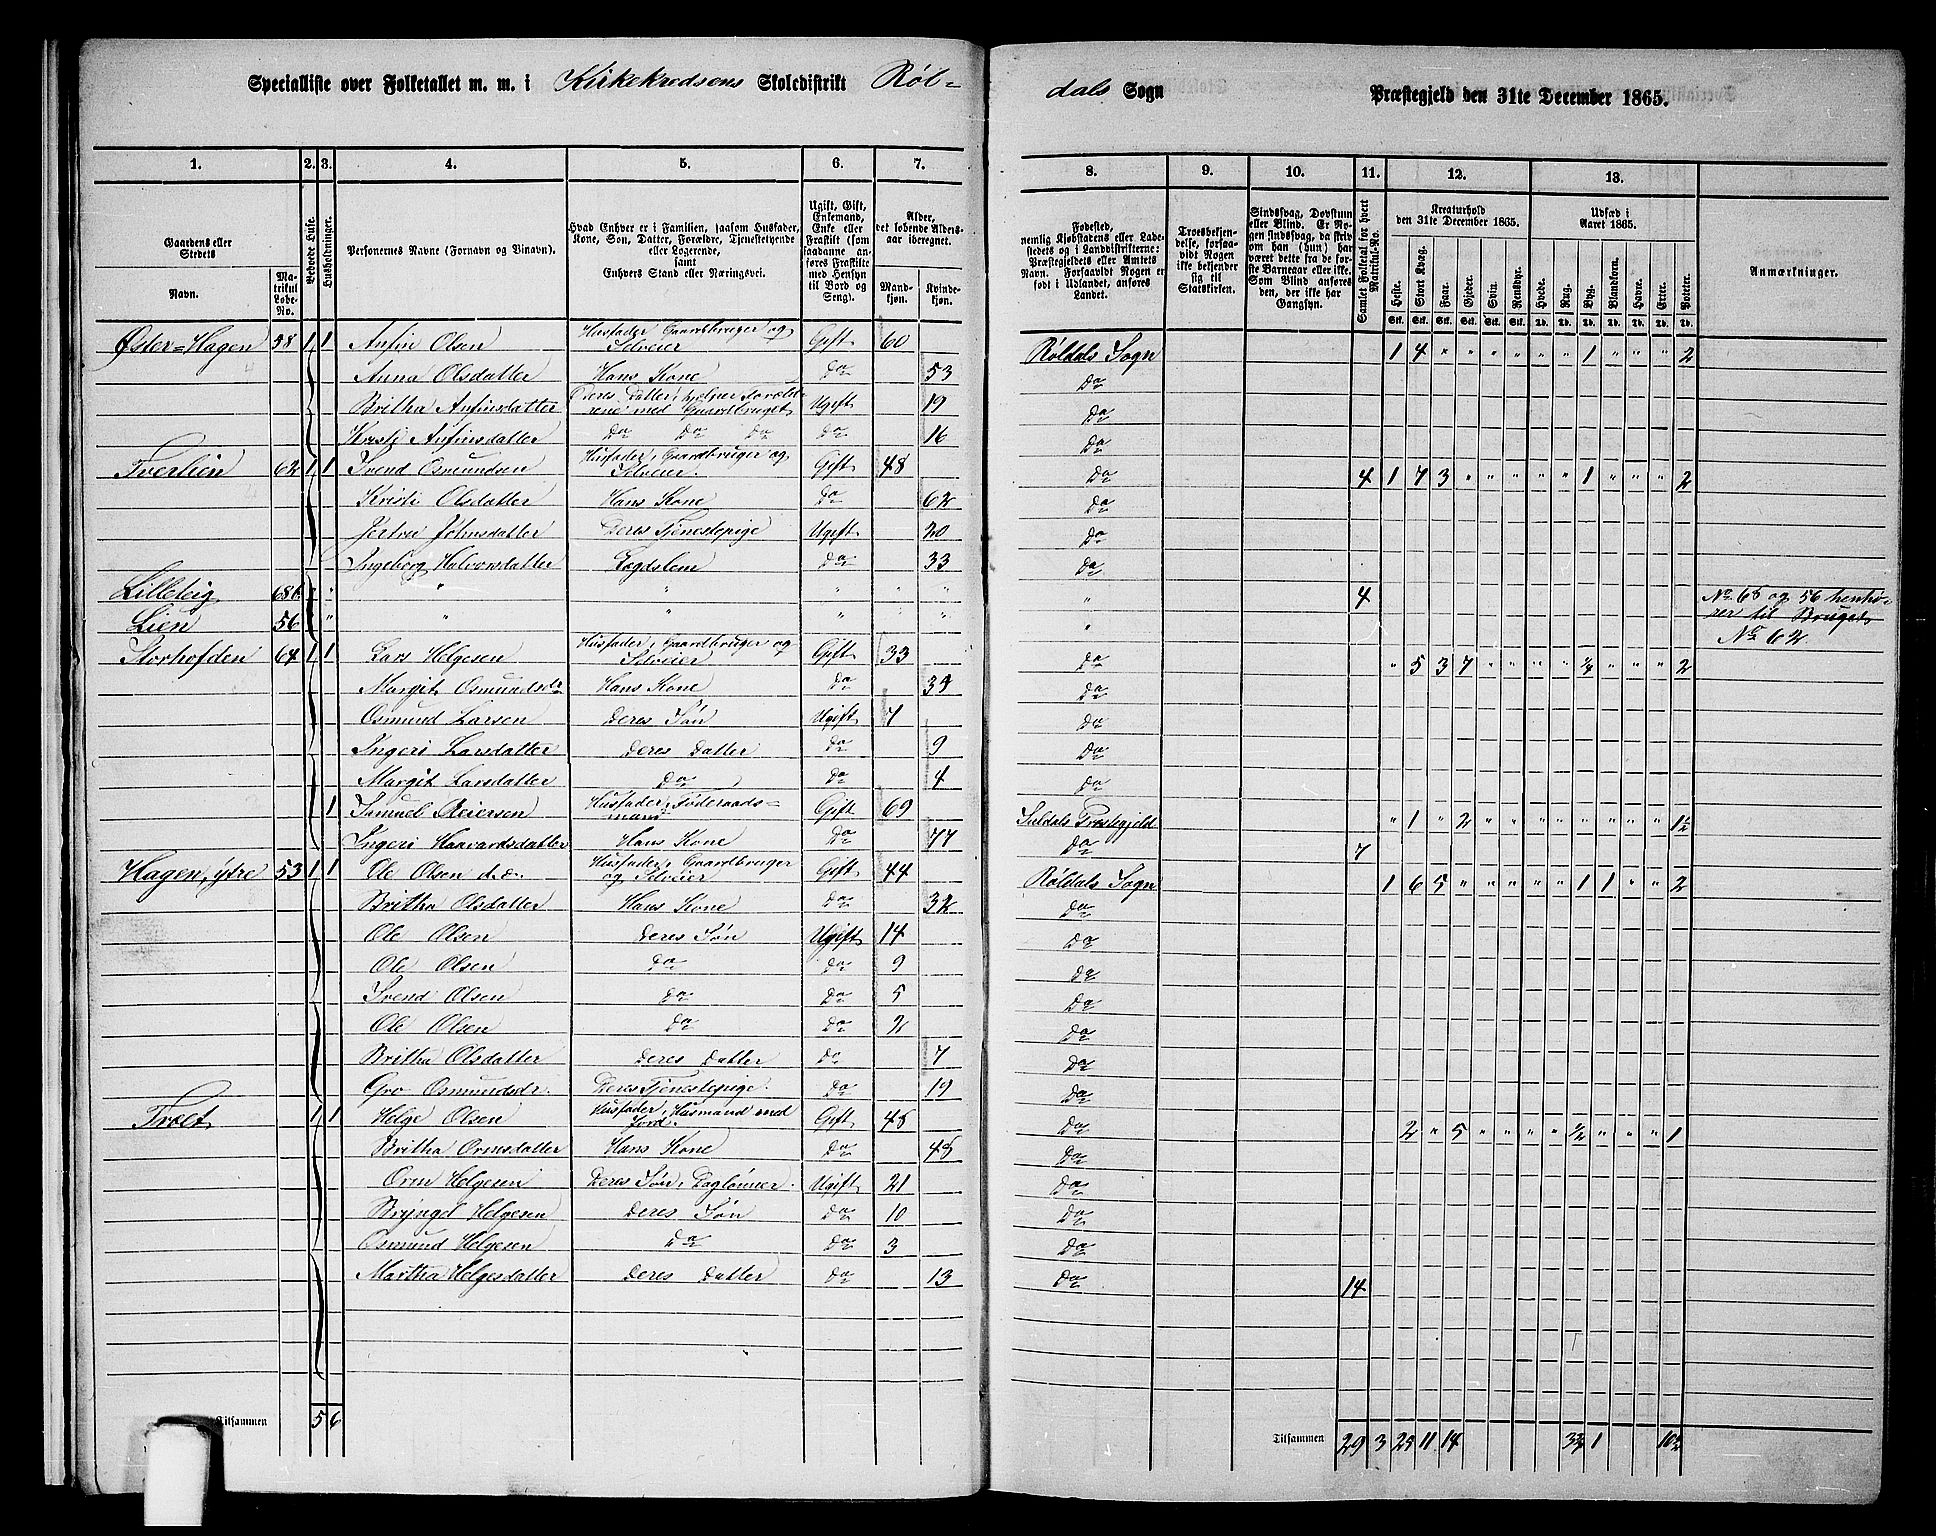 Specialliste over Folketallet m. m. i Kirkekredsens Skoledistrikt Røl-
dals Sogn Præstegjeld den 31te December 1865.
1. 2. 3. 4. 5. 6. 7.
8. 9. 10. 11. 12. 13.
Gaardens eller Stedets Navn.
Matrikul Løbe-No.
Beboede Huse.
Husholdninger.
Personernes Navne (Fornavn og Tilnavn).
Hvad Enhver er i Familien, saasom Husfader, Kone, Søn, Datter, Forældre, Tjenestetyende eller Logerende, samt Enhvers Stand eller Næringsvei.
Ugift, Gift, Enkemand, Enke eller Fraskilt (som saadanne anføres Fraskilte med Hensyn til Bord og Seng).
Alder, det løbende Aldersaar iberegnet.
Mandkjøn. Kvindekjøn.
Fødested, nemlig Kjøbstadens eller Ladestedets og i Landdistrikterne: Præstegjeldets eller Amtets Navn. Forsaavidt Nogen er født i Udlandet, anføres Landet.
Troesbekjendelse, forsaavidt Nogen ikke bekjender sig til Statskirken.
Sindssvag, Døvstum eller Blind. Er Nogen sindssvag, da skriv om han (hun) har været dette fra de første Barneaar eller ikke. Som Blind anføres den, der ikke har Gangsyn.
Samlet Folketal for hvert Matrikul-No.
Kreaturhold den 31te December 1865.
Heste. Stort Kvæg. Faar. Gjeder. Sviin. Rensdyr.
Udsæd i Aaret 1865.
Hvede. Rug. Byg. Blandkorn. Havre. Erter. Poteter.
Stk. Stk. Stk. Stk. Stk. Stk. Td. Td. Td. Td. Td. Td. Td.
Anmærkninger.
Øster-Hagen 58 1 1 Anfin Olsen Husfader, Gaardbruger og Selveier Gift 60 Røldals Sogn 1 4 " " " " " " 1 " " " 2
Anna Olsdatter Hans Kone Do 53 Do
Britha Anfinsdatter Deres Datter, hjelper Forældrene med Gaardbruget Ugift 19 Do
Kristi Anfinsdatter Do Do Do Do 16 Do
Tverlien 62 1 1 Svend Osmundsen Husfader, Gaardbruger og Selveier. Gift 48 Do 4 1 7 3 " " " " " 1 " " " 2
Kristi Olsdatter Hans Kone Do 62 Do
Johnsdatter Deres Tjenestepige Ugift 20 Do
Ingeborg Halvorsdatter Lægdslem Do 33 Do
Lilleteig 68 " " " " " " " 4 No 68 og 56 henhø-
Lien 56 " " " " " " rer til Bruget
No 62
Storhofden 64 1 1 Lars Helgesen Husfader, Gaardbruger og Selveier Gift 33 Do " 5 3 7 " " " " ¼ " " " 2
Margit Osmundsdr Hans Kone Do Do
Osmund Larsen Deres Søn Ugift 7 Do
Ingeri Larsdatter Deres Datter Do 9 Do
Margit Larsdatter Do Do 4 Do
1 Samuel Reiersen Husfader, Føderaads-
mand Gift 69 Suldals Præstegjeld " 1 " 2 " " " " " " " " 1½
Ingeri Haavardsdatter Hans Kone Do 77 Do 7
Hagen, ytre 53 1 1 Ole Olsen d.æ. Husfader, Gaardbruger og Selveier Gift 44 Røldals Sogn 1 6 5 " " " " " 1 1 " " 2
Britha Olsdatter Hans Kone Do 32 Do
Ole Olsen Deres Søn Ugift 14 Do
Ole Olsen Do Do 9 Do
Svend Olsen Do Do 5 Do
Ole Olsen Do Do 2 Do
Britha Olsdatter Deres Datter Do 7 Do
Gro Osmundsdr. Deres Tjenestepige. Do 19 Do
Træet 1 1 Helge Olsen Husfader, Husmand med Jord. Gift 48 Do 2 " 5 " " " " ½ " " " 1
Britha Ormsdatter Hans Kone Do 48 Do
Orm Helgesen Deres Søn, Daglønner. Ugift 21 Do
Bryngel Helgesen Deres Søn Do 10 Do
Osmund Helgesen Do Do 3 Do
Martha Helgesdatter Deres Datter Do 13 Do 14
Tilsammen 5 6
Tilsammen 29 3 25 11 14 3¾ 1 10½